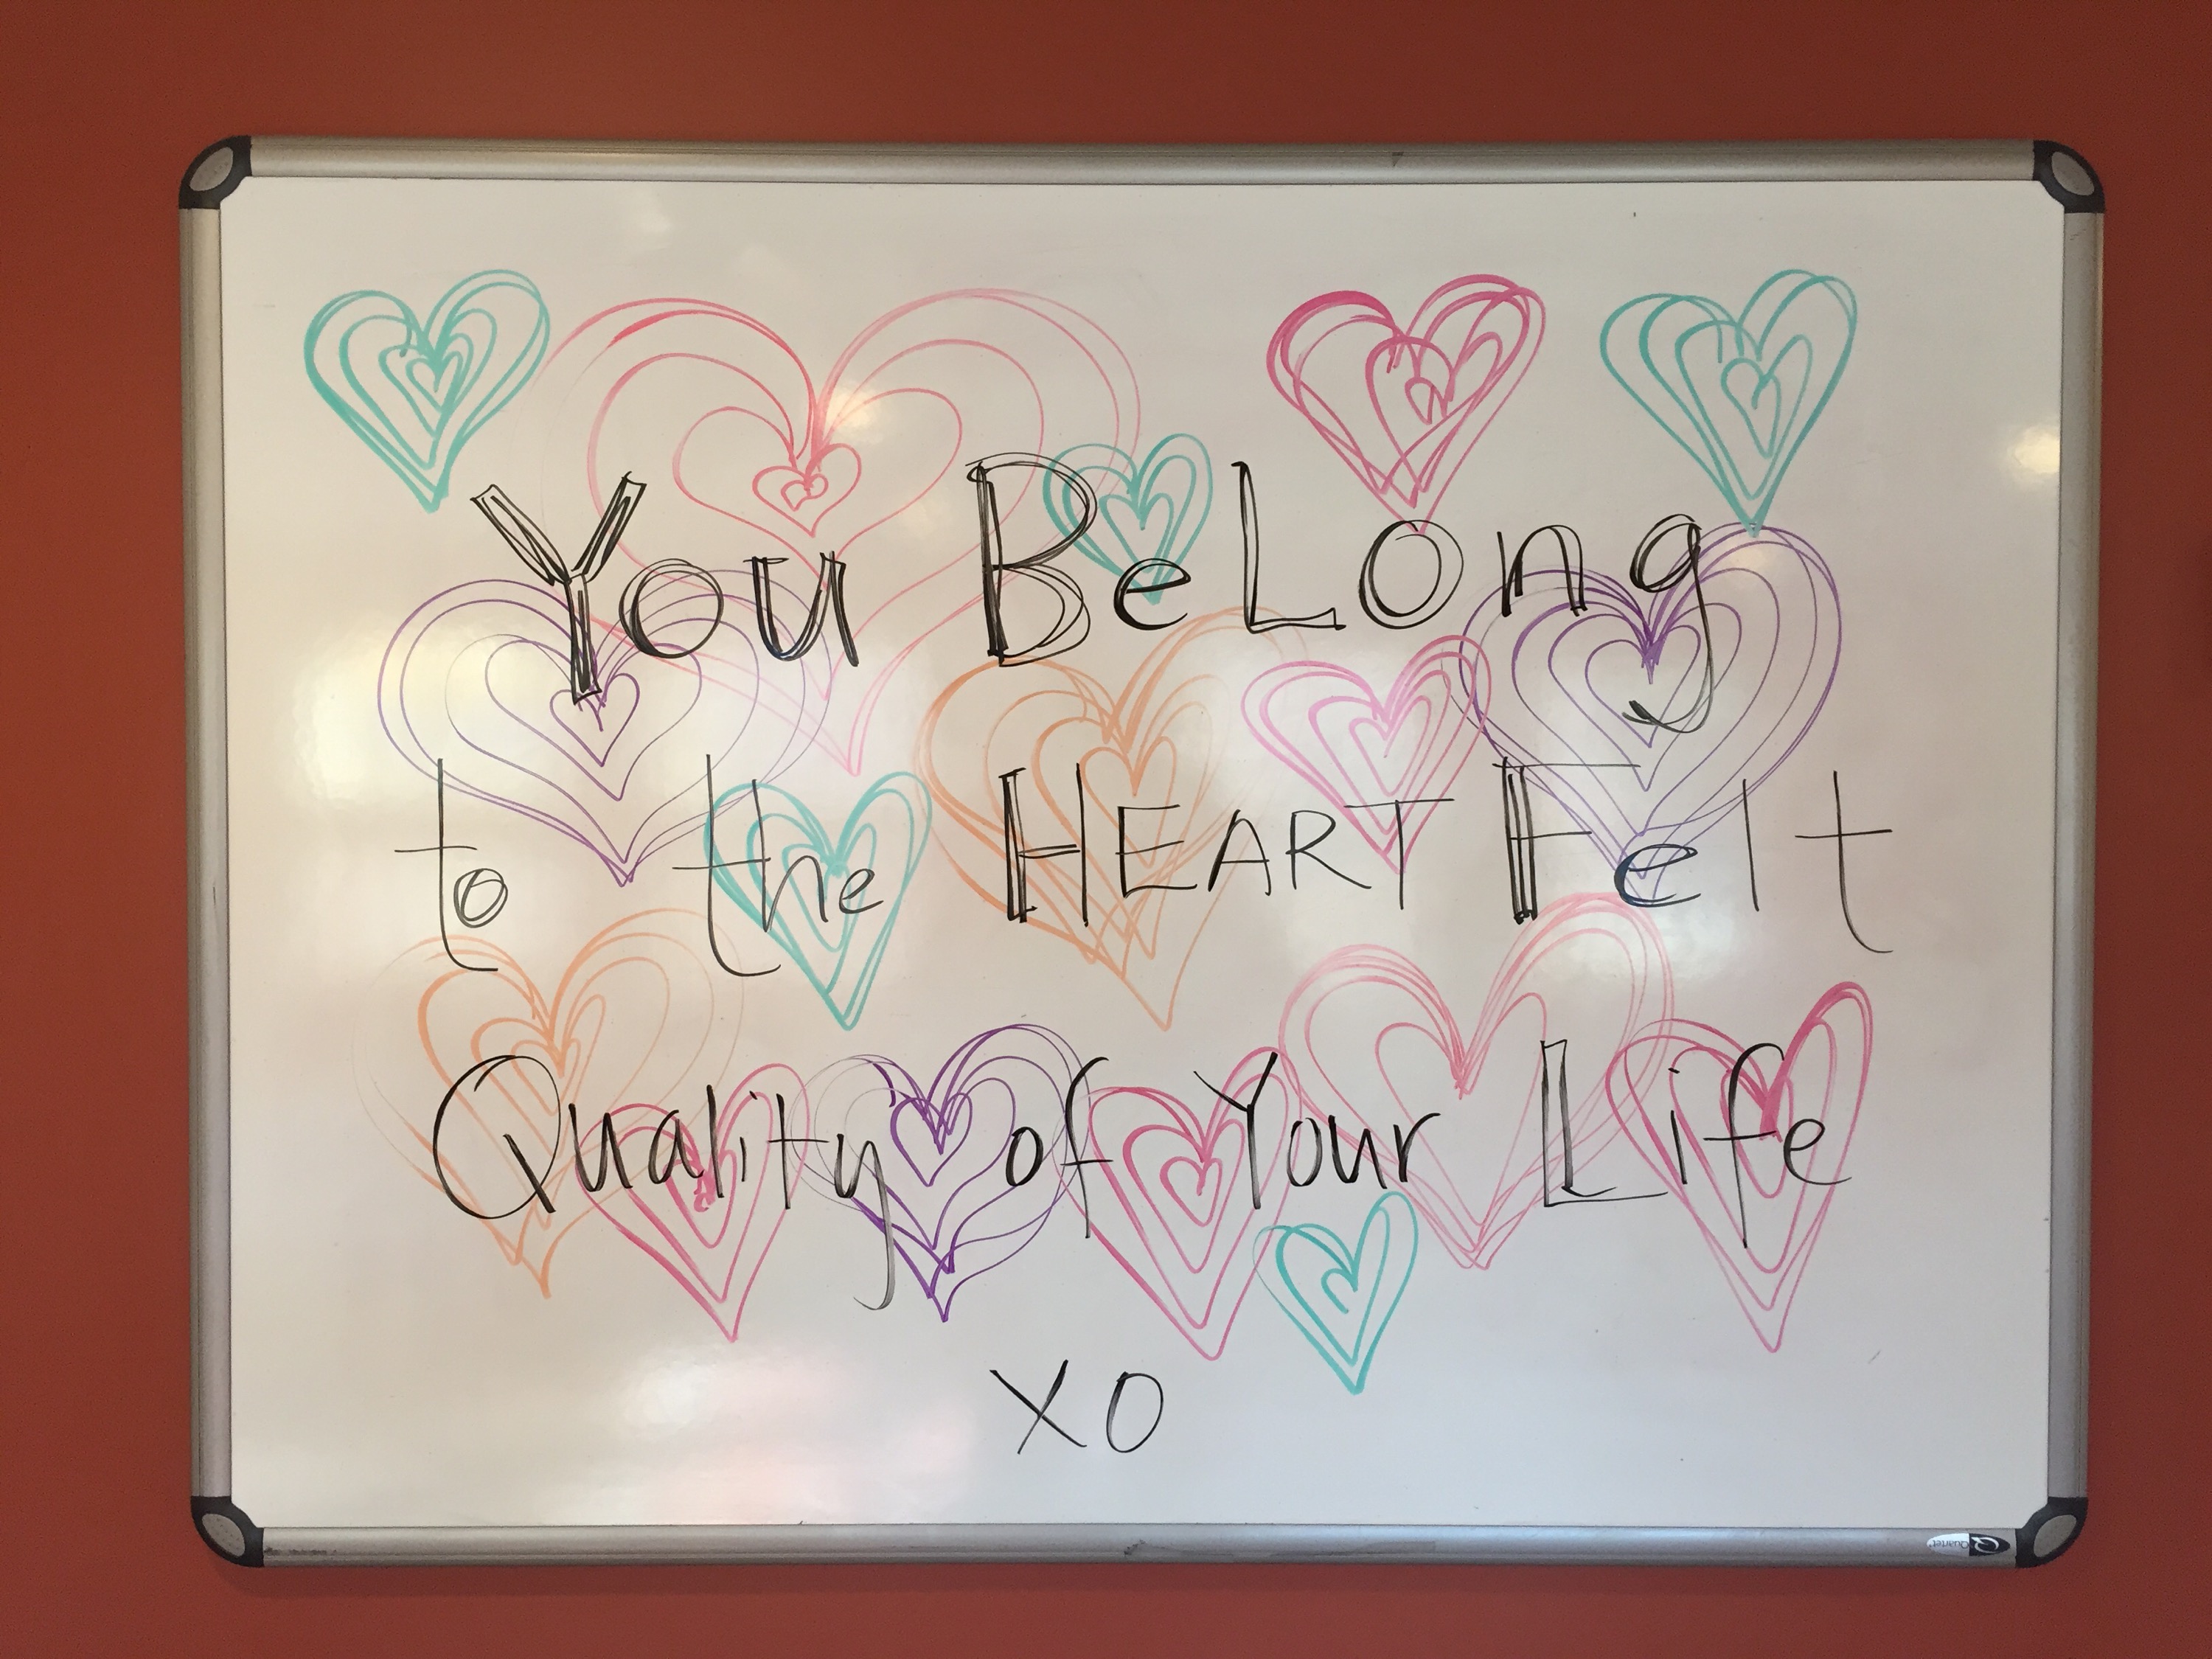 You BeLong
to the HEART Felt
Quality of Your Life
XO
Quartet